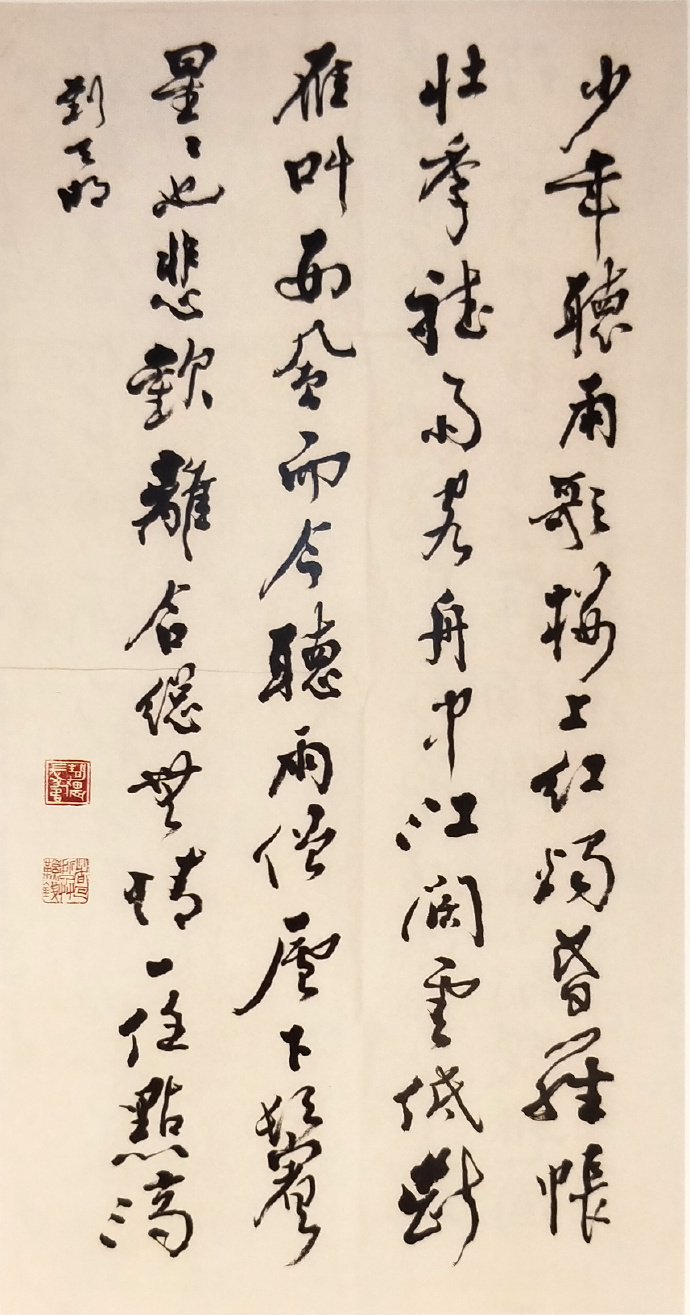 少年聽雨歌樓上紅燭昏羅帳
壯年聽雨客舟中江闊雲低斷
雁叫西風而今聽雨僧廬下鬢
星〻也悲歡離合總無情一任點滴
到天明